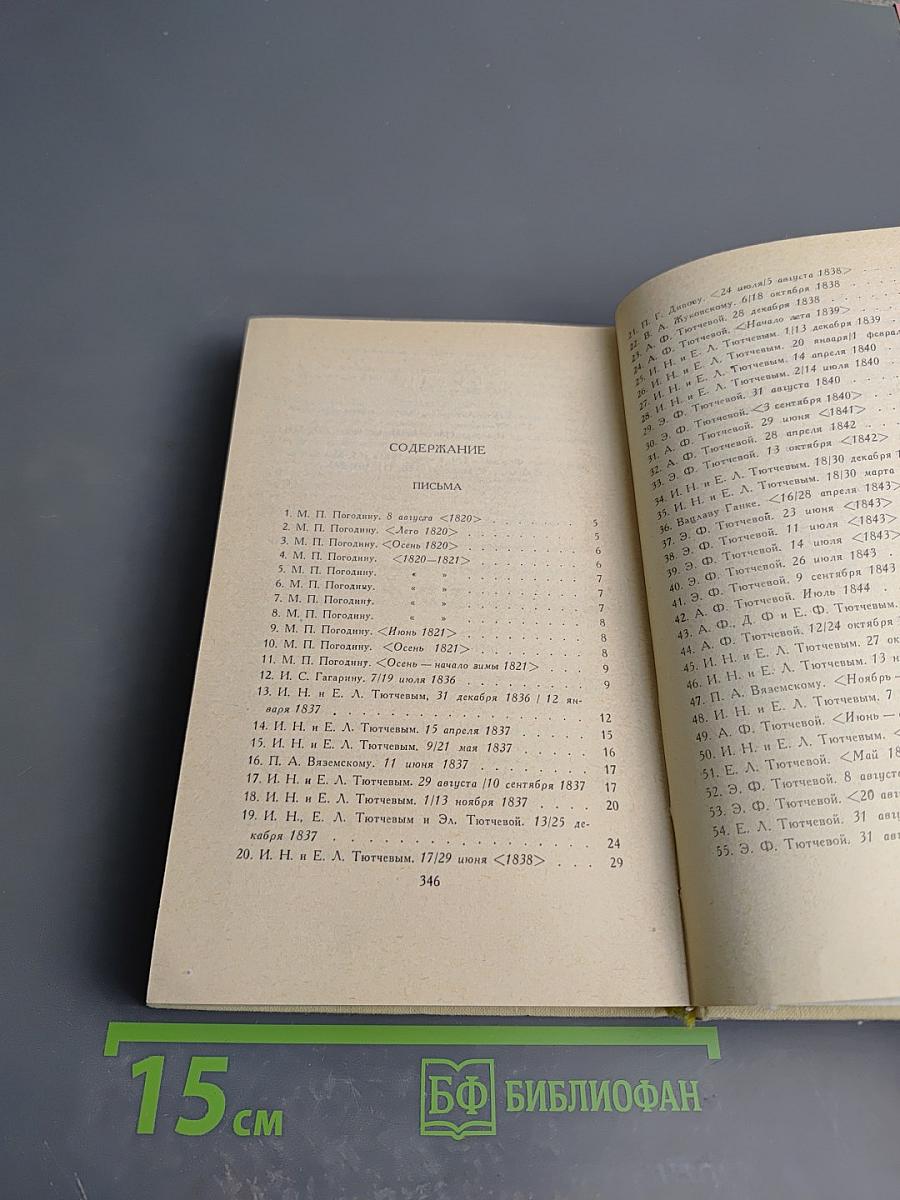 СОДЕРЖАНИЕ
ПИСЬМА
1. М. П. Погодину. 8 августа <1820> . . . . . . . . 5
2. М. П. Погодину. <Лето 1820> . . . . . . . . . 5
3. М. П. Погодину. <Осень 1820> . . . . . . . . . 6
4. М. П. Погодину. <1820—1821> . . . . . . . . . 6
5. М. П. Погодину. « » . . . . . . . . . 7
6. М. П. Погодину. « » . . . . . . . . . 7
7. М. П. Погодину. « » . . . . . . . . . 7
8. М. П. Погодину. « » . . . . . . . . . 8
9. М. П. Погодину. <Июнь 1821> . . . . . . . . . 8
10. М. П. Погодину. <Осень 1821> . . . . . . . . . 8
11. М. П. Погодину. <Осень — начало зимы 1821> . . . . 9
12. И. С. Гагарину. 7/19 июля 1836 . . . . . . . . . 9
13. И. Н. и Е. Л. Тютчевым, 31 декабря 1836 / 12 ян-
варя 1837 . . . . . . . . . . . . . . . 12
14. И. Н. и Е. Л. Тютчевым. 15 апреля 1837 . . . . . 15
15. И. Н. и Е. Л. Тютчевым. 9/21 мая 1837 . . . . . 16
16. П. А. Вяземскому. 11 июня 1837 . . . . . . . . 17
17. И. Н. и Е. Л. Тютчевым. 29 августа /10 сентября 1837 17
18. И. Н. и Е. Л. Тютчевым. 1/13 ноября 1837 . . . . 20
19. И. Н., Е. Л. Тютчевым и Эл. Тютчевой. 13/25 де-
кабря 1837 . . . . . . . . . . . . . . . 24
20. И. Н. и Е. Л. Тютчевым. 17/29 июня <1838> . . . 29
346
21. П. Г. Дивову. <24 июля/5 августа 1838> . . .
22. В. А. Жуковскому. 6/18 октября 1838 . . .
23. А. Ф. Тютчевой. 28 декабря 1838 . . . .
24. А. Ф. Тютчевой. <Начало лета 1839> . . .
25. И. Н. и Е. Л. Тютчевым. 1/13 декабря 1839 . .
26. И. Н. и Е. Л. Тютчевым. 20 января/1 феврал
27. И. Н. и Е. Л. Тютчевым. 14 апреля 1840 . .
28. И. Н. и Е. Л. Тютчевым. 2/14 июля 1840 . .
29. Э. Ф. Тютчевой. 31 августа 1840 . . . .
30. Э. Ф. Тютчевой. <3 сентября 1840> . . .
31. А. Ф. Тютчевой. 29 июня <1841> . . .
32. А. Ф. Тютчевой. 28 апреля 1842 . . .
33. Э. Ф. Тютчевой. 13 октября <1842> . .
34. И. Н. и Е. Л. Тютчевым. 18/30 декабря 1
35. И. Н. и Е. Л. Тютчевым. 18/30 марта
36. Вацлаву Ганке. <16/28 апреля 1843>
37. Э. Ф. Тютчевой. 23 июня <1843> .
38. Э. Ф. Тютчевой. 11 июля <1843> .
39. Э. Ф. Тютчевой. 14 июля <1843>
40. Э. Ф. Тютчевой. 26 июля 1843 .
41. Э. Ф. Тютчевой. 9 сентября 1843
42. А. Ф. Тютчевой. Июль 1844 .
43. А. Ф., Д. Ф и Е. Ф. Тютчевым.
44. А. Ф. Тютчевой. 12/24 октября
45. И. Н. и Е. Л. Тютчевым. 27 ок
46. И. Н. и Е. Л. Тютчевым. 13 н
47. П. А. Вяземскому. <Ноябрь —
48. И. Н. и Е. Л. Тютчевым. 7
49. А. Ф. Тютчевой. <Июнь —
50. И. Н. и Е. Л. Тютчевым. <
51. Е. Л. Тютчевой. <Май 18
52. Э. Ф. Тютчевой. 8 августа
53. Э. Ф. Тютчевой. <20 авг
54. Е. Л. Тютчевой. 31 авгу
55. Э. Ф. Тютчевой. 31 авг
15 см
БФ БИБЛИОФАН